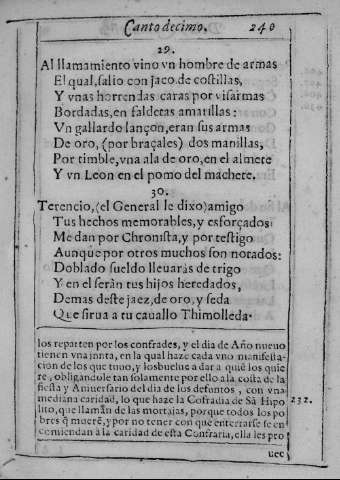 Canto decimo. 240
29.
Al llamamiento vino vn hombre de armas
El qual, salio con jaco de costillas,
Y vnas horrendas caras por visarmas
Bordadas, en falderas amarillas:
Vn gallardo lançon, eran sus armas
De oro, (por braçales) dos manillas,
Por timble, vna ala de oro, en el almete
Y vn Leon en el pomo del machete.
30.
Terencio, (el General le dixo) amigo
Tus hechos memorables, y esforçados:
Me dan por Chronista, y por testigo
Aunque por otros muchos son notados:
Doblado sueldo lleuarás de trigo
Y en el serán tus hijos heredados,
Demas deste jaez, de oro, y seda
Que sirua a tu cauallo Thimolleda.
los reparten por los confrades, y el dia de Año nueuo
tienen vna junta, en la qual haze cada vno manifesta-
cion de los que tuuo, y los buelue a dar a quiẽ los quie
re, obligandole tan solamente por ello a la costa de la
fiesta y Aniuersario del dia de los defuntos, con vna
mediana caridad, lo que haze la Cofradia de Sã Hipo 232.
lito, que llamãn de las mortajas, porque todos los po
bres q̃ muerẽ, y por no tener con que enterrarse se en
comiendan à la caridad de esta Confraria, ella les pro
uee